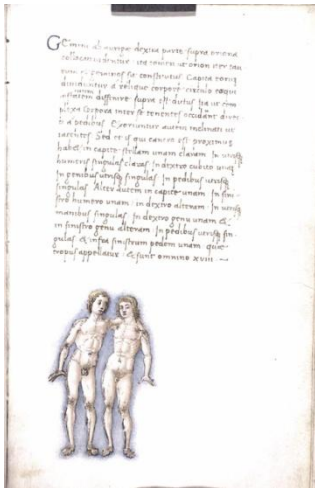 GEmini ab aurigae dextra parte supra oriona
collocari videntur ita tamen ut orion inter tau
rum et geminos sit constitutus Capita eorum
dividuntur a reliquo corpore circulo eoque
diffinire supra est dictus Ita ut com
plexa corpora inter se tenentes occidant direc
ti a pedibus Exoriuntur autem inclinati ut
iacentes Sed et is qui cancro est proximus
habet in capite stellam unam claram In utrisque
humeris singulas claras In dextro cubito unam
In genibus utrisque singulas In pedibus utrisque
singulas Alter autem in capite unam In sini
stro humero unam in dextro alteram In utrisque
manibus singulas In dextro genu unam &
in sinistro genu alteram In pedibus utrisque sin
gulas & infra sinistrum pedem unam quae
tropus appellatur & sunt omnino xviii